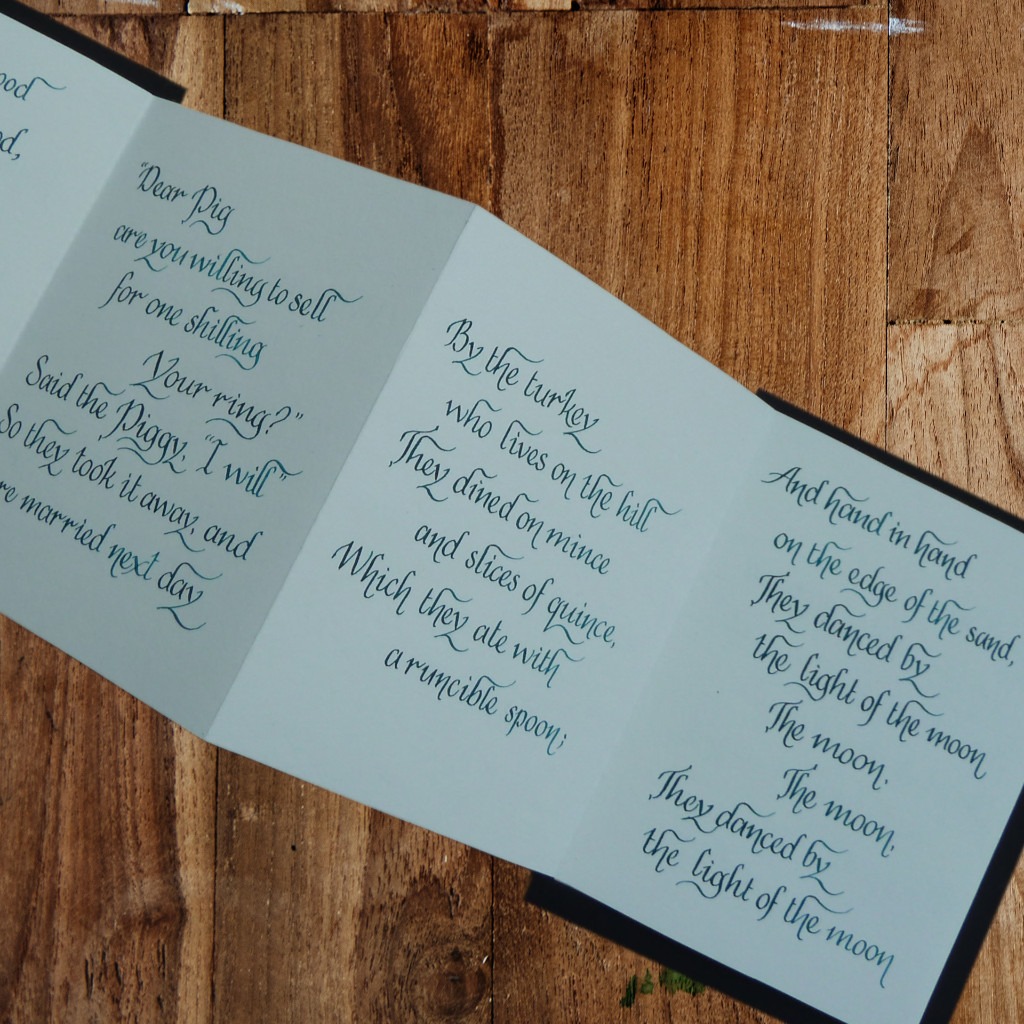 ood
od,
"Dear Pig
are you willing to sell
for one shilling
Your ring?"
Said the Piggy, "I will"
So they took it away, and
re married next day
By the turkey
who lives on the hill
They dined on mince
and slices of quince,
Which they ate with
a runcible spoon;
And hand in hand
on the edge of the sand,
They danced by
the light of the moon
The moon,
The moon,
They danced by
the light of the moon